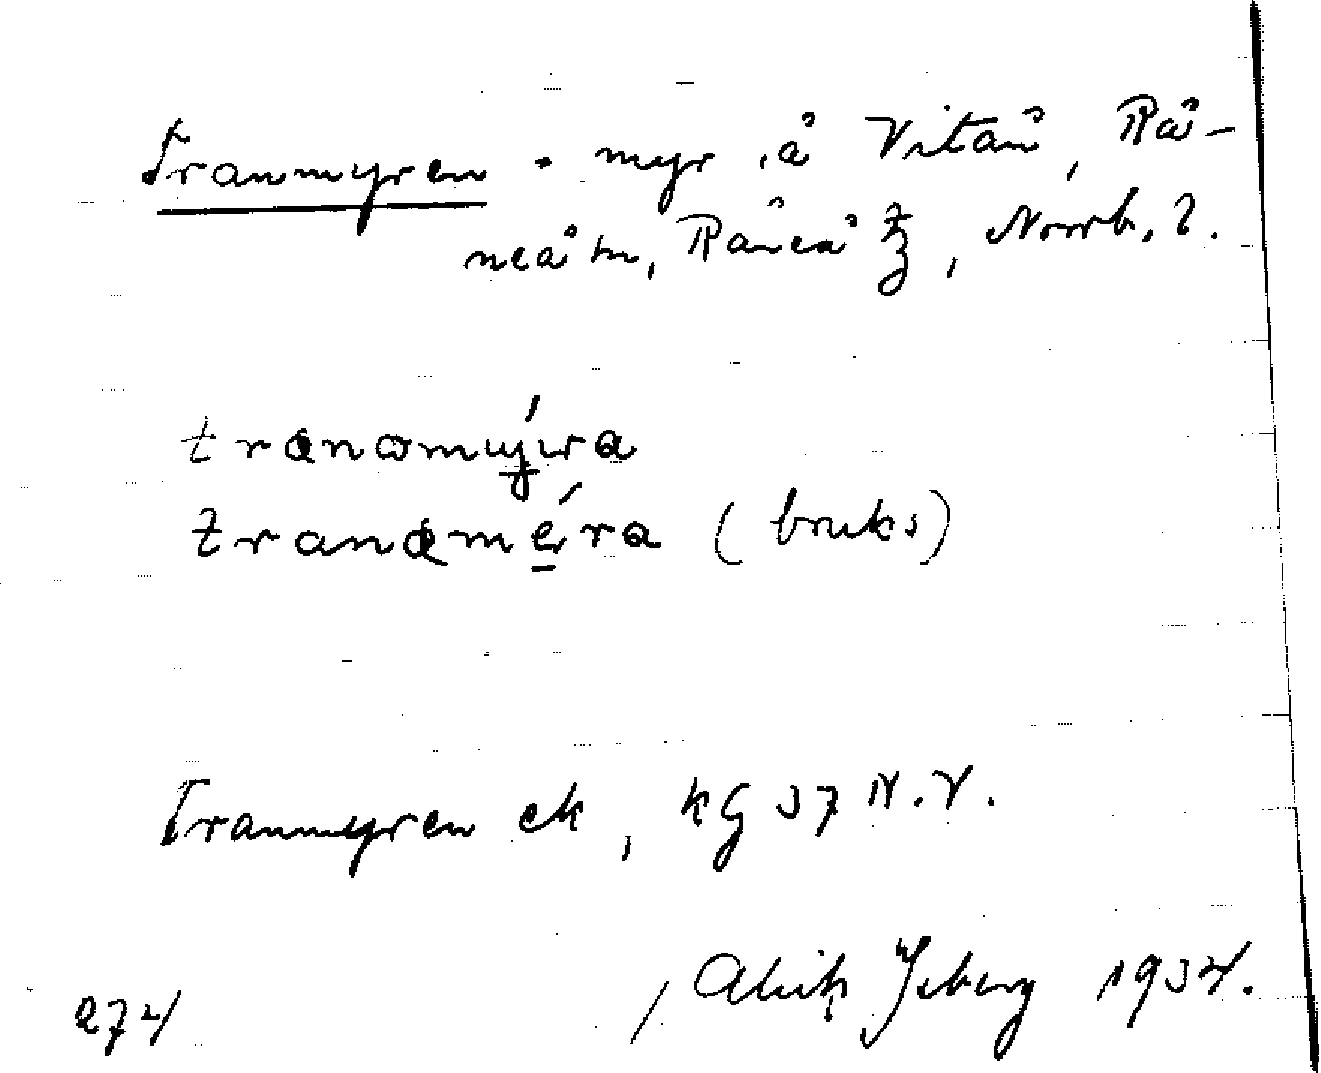 Tranmyren . myr , å Vitån, Rå-
neå tn, Råneå tg, Norrb. l.
tranomýra
tranaméra (bruks)
Tranmyren ek, kg 37 N.V.
274 / Alrik 1934.